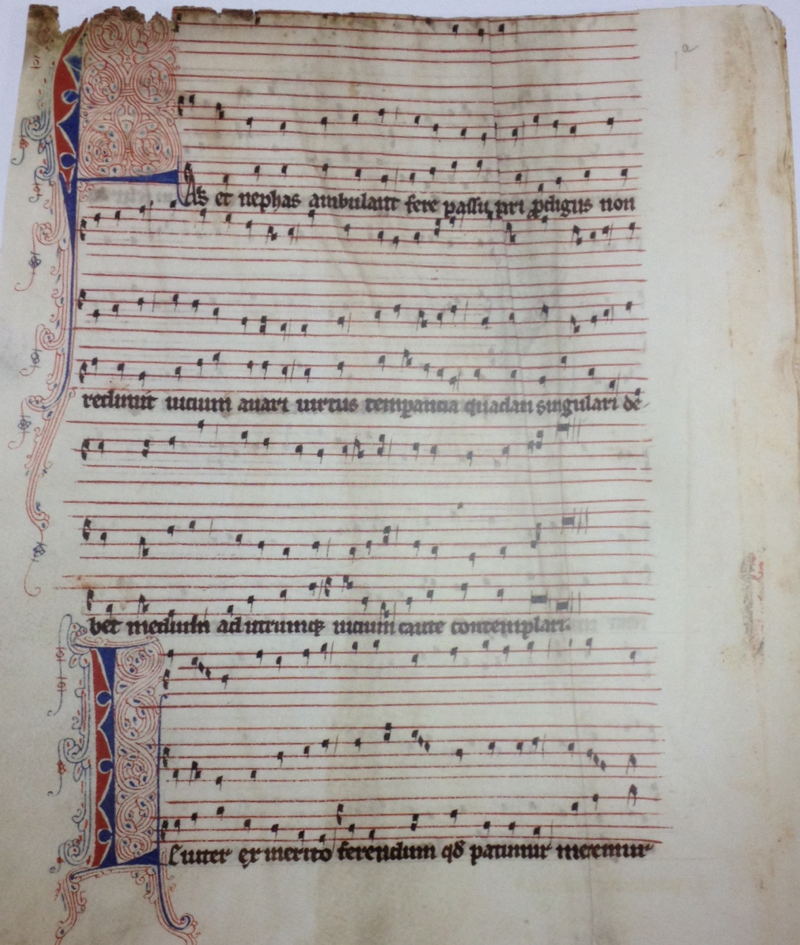 As et nephas ambulant fere passu pri prdigus non
redimit uicium auari uirtus temperancia quadam singulari de
bet medium ad utrumque uicium caute contemplari.
Liuter ex merito ferendum qd patimur meremur